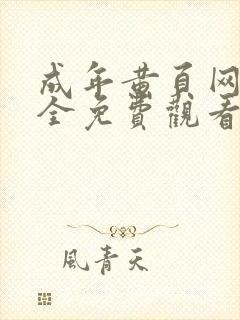 成年黄頁网
全免費觀看
風青天